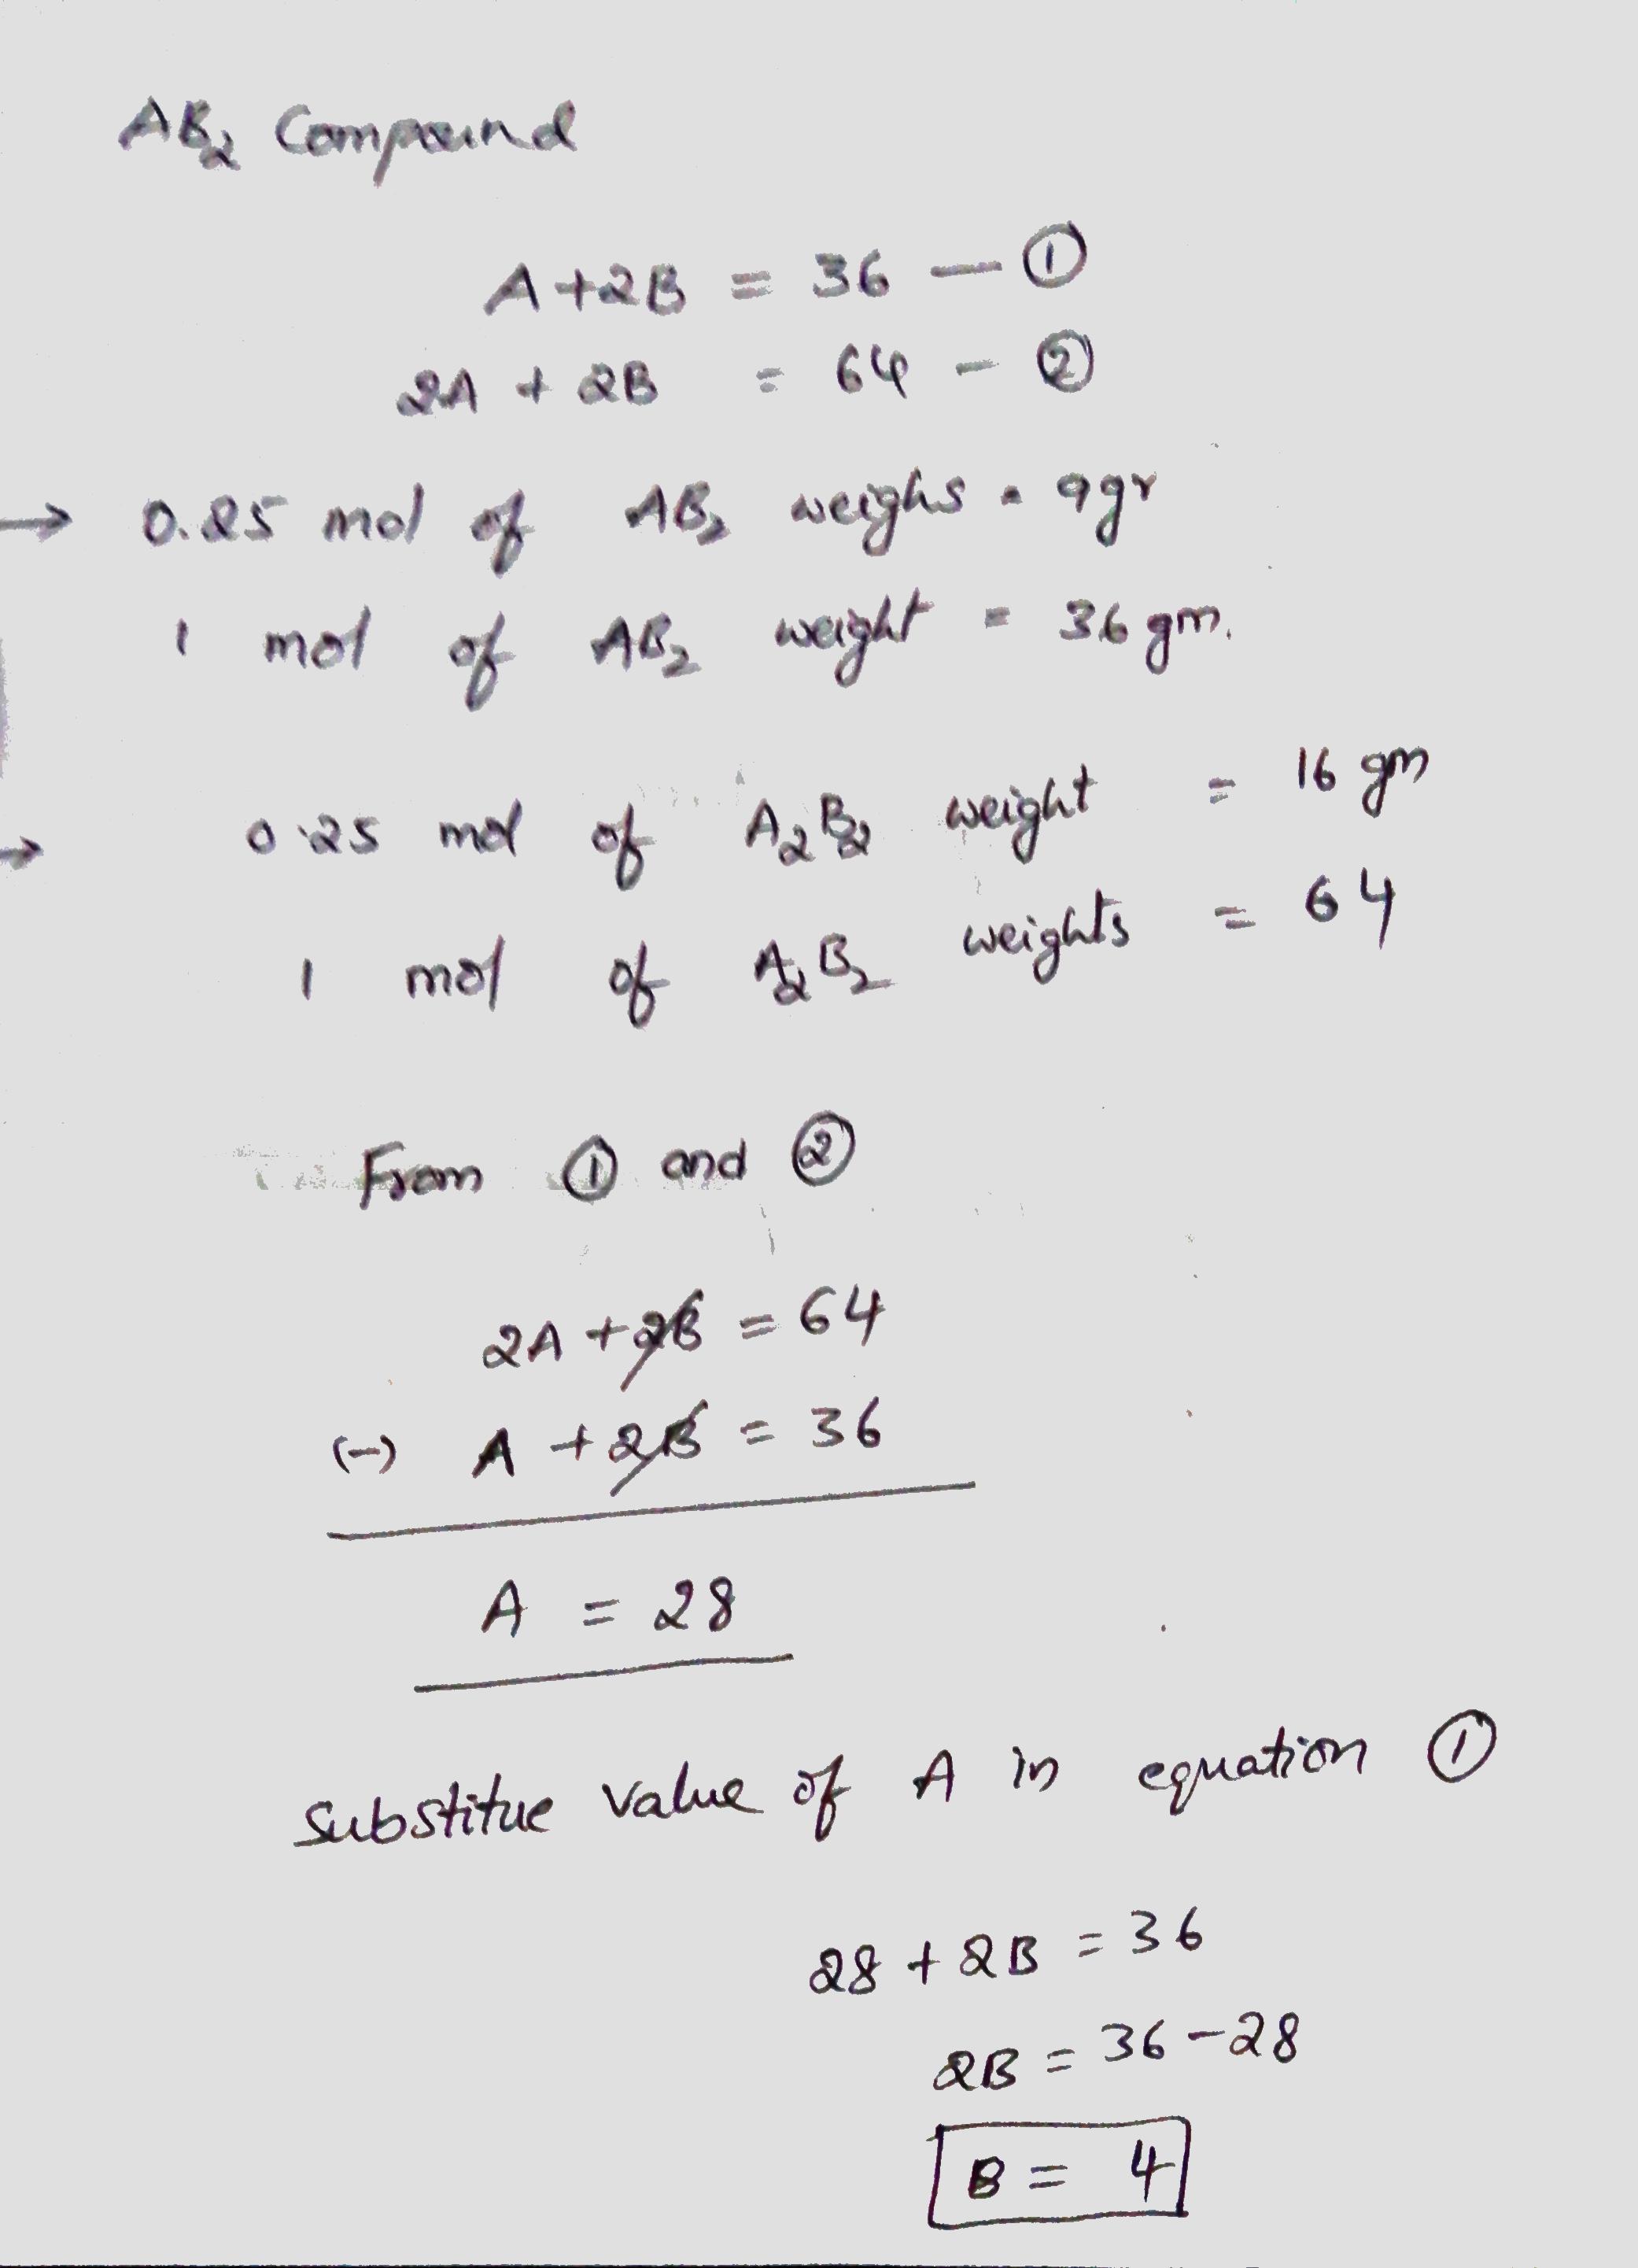 AB₂ Compound
A + 2B = 36 — ①
2A + 2B = 64 – ②
→ 0.25 mol of AB₂ weighs = 9gr
1 mol of AB₂ weight = 36 gm.
→ 0.25 mol of A₂B₂ weight = 16 gm
1 mol of A₂B₂ weights = 64
From ① and ②
2A + 2B = 64
(-) A + 2B = 36
A = 28
Substitue value of A in equation ①
28 + 2B = 36
2B = 36 - 28
B = 4